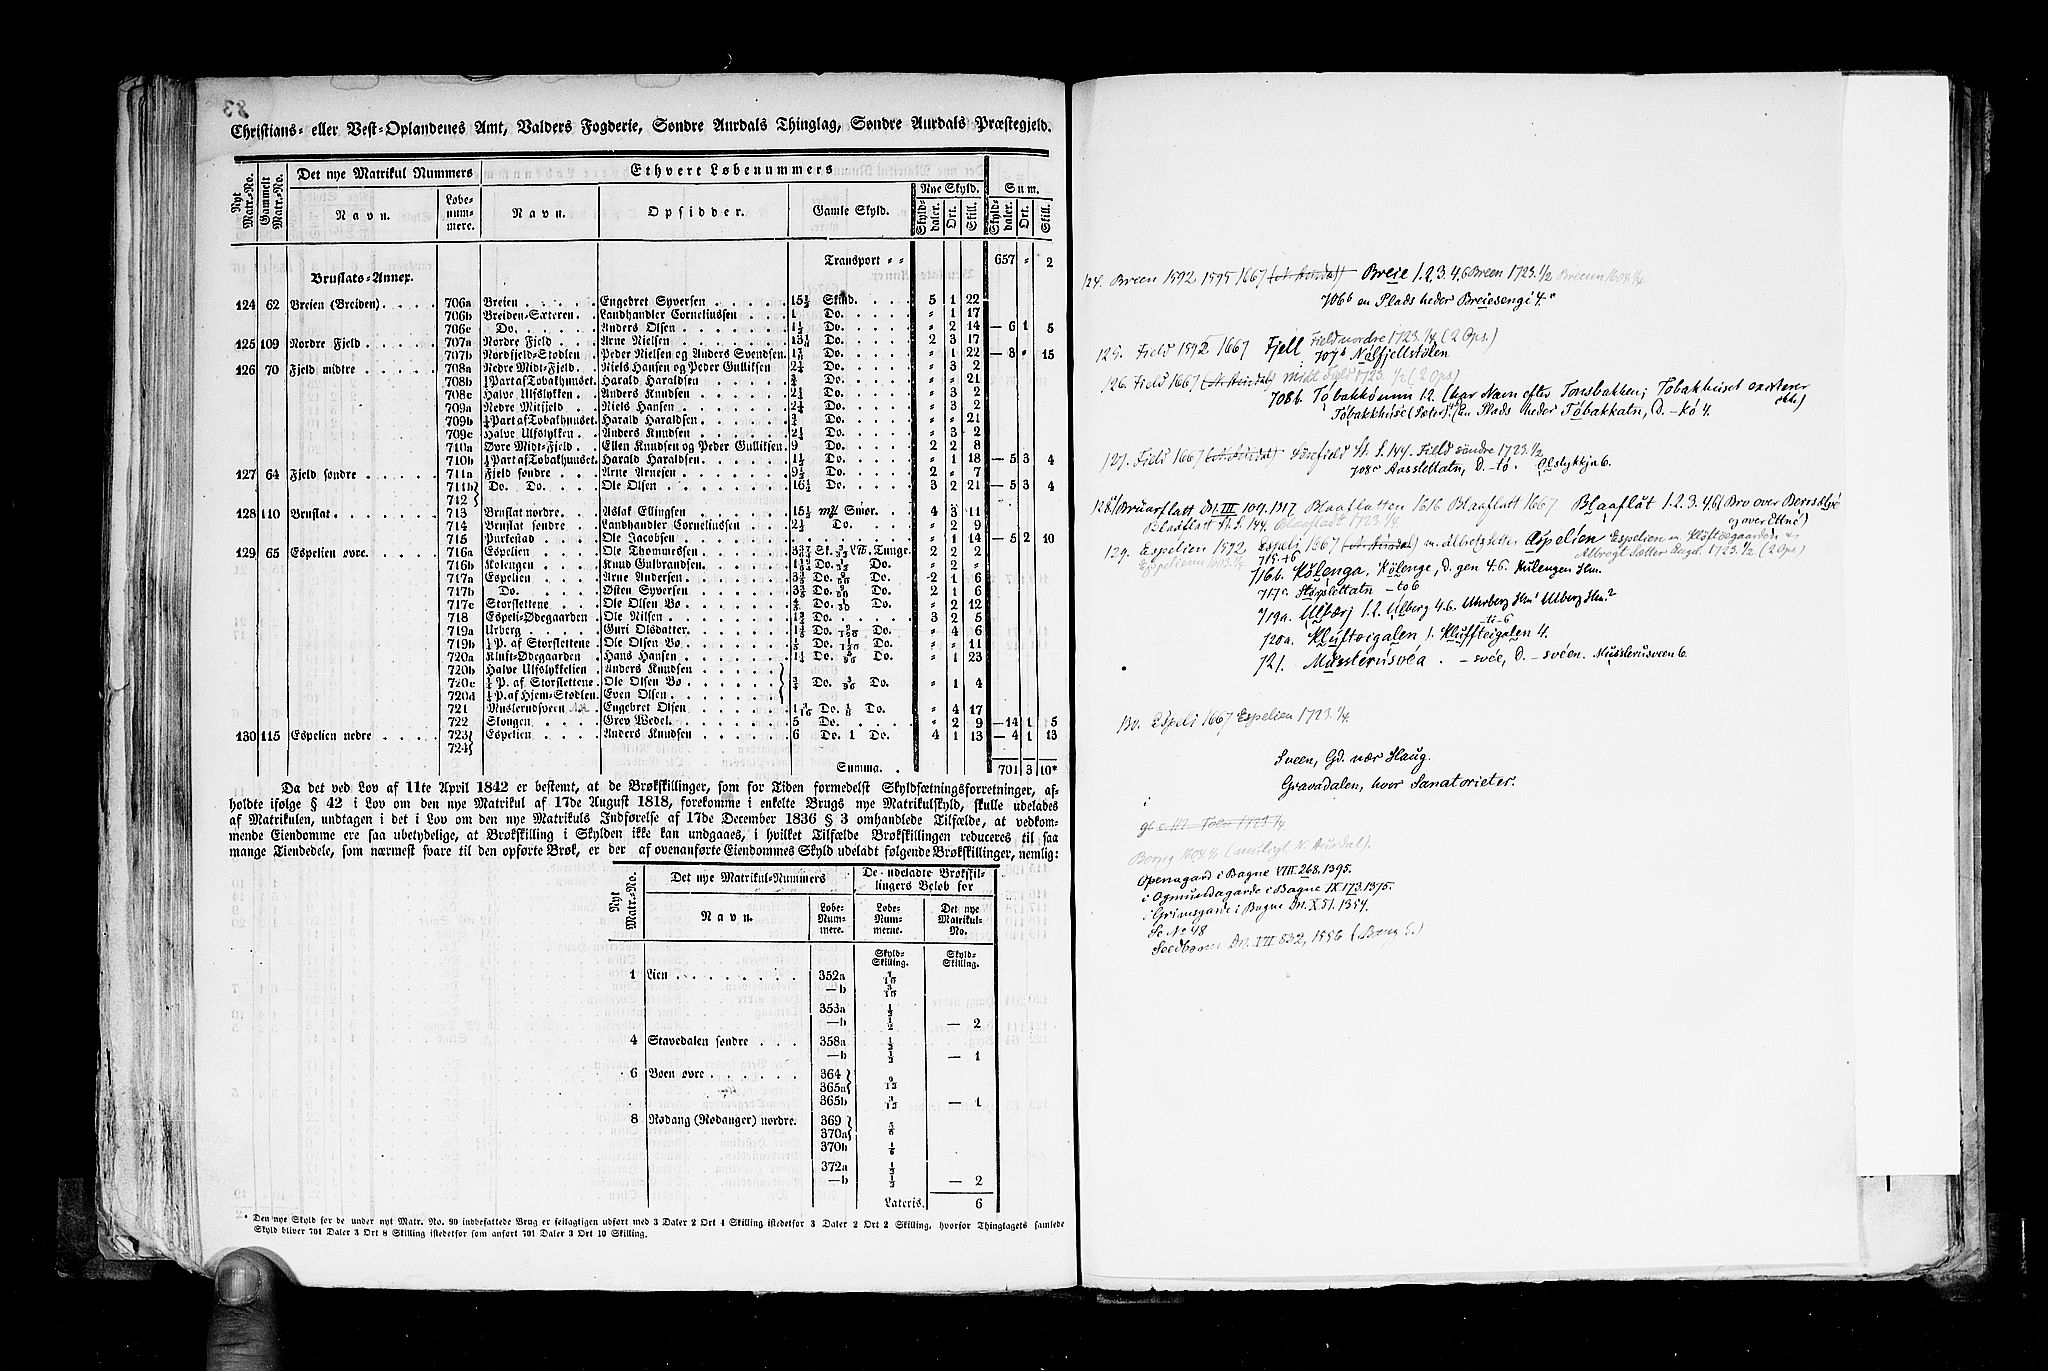 83
Christians- eller Vest-Oplandenes Amt, Valders Fogderie, Søndre Aurdals Thinglag, Søndre Aurdals Præstegjeld.
Nyt Matr.-No.
Gammelt Matr.-No.
Det nye Matrikul Nummers
Ethvert Løbenummers
Nye Skyld.
Sum.
Navn.
Løbe-nummere.
Navn.
Opsidder.
Gamle Skyld.
Skylddaler. Ort. Skill.
Skylddaler. Ort. Skill.
Transport " " 657 " 2
Bruflats-Annex.
124 62 Breien (Breiden) 706a Breien Engebret Syversen 15½ Skind. 5 1 22
706b Breiden-Sæteren Landhandler Corneliussen 1 Do. " 1 17
706c Do. Anders Olsen 1½ Do. " 2 14 — 6 1 5
125 109 Nordre Field 707a Nordre Field Arne Nielsen Do. 2 3 17
707b Nordfjeld-Stødlen Peder Nielsen og Anders Svendsen Do. " 1 22 — 3 " 15
126 70 Fjeld midtre 708a Nedre Midt-Fjeld Niels Hansen og Peder Gulliksen 2¼ Do. " 3 2
708b ¼ Part af Tobakhunset Harald Haraldsen ¾ Do. " " 21
708c Halve Ulfslykken Anders Knudsen 2¼ Do. " 3 2
709a Nedre Mitfjeld Niels Hansen 2¼ Do. " 3 2
709b ¼ Part af Tobakhunset Harald Haraldsen ¾ Do. " " 21
709c Halve Ulfslykken Anders Knudsen 2¼ Do. " 3 2
710a Øvre Midt-Fjeld Ellen Knudsen og Peder Gulliksen 9 Do. 2 2 8
710b ½ Part af Tobakhunset Harald Haraldsen 1½ Do. " 1 18 — 5 3 4
127 64 Fjeld søndre 711a Fjeld søndre Arne Arnesen 9½ Do. 2 " 7
711b Do. Do. Ole Olsen 16¼ Do. 3 2 21 — 5 3 4
712
128 110 Bruflat 713 Bruflat nordre Aslak Ellingsen 15½ Smør. 4 3 11
714 Bruflat søndre Landhandler Corneliussen 2½ Do. " 2 9
715 Purkestad Ole Jacobsen " 1 14 — 5 2 10
129 65 Espelien øvre 716a Espelien Ole Thommessen Tunge 2 2 2
716b Kolengen Knud Gulbrandsen Do. Do. " 2 "
717a Espelien Arne Andersen Do. Do. 2 1 6
717b Do. Østen Syversen Do. Do. 2 1 6
717c Storslettene Ole Olsen Bø Do. Do. " 2 12
718 Espeli-Ødegaarden Ole Nilsen Do. 3 2 5
719a Urberg Guri Olsdatter Do. Do. " 4 6
719b ¼ P. af Storslettene Ole Olsen Bø Do. Do. " " 11
720a Kluft-Ødegaarden Hans Hansen Do. Do. " 1 23
720b Halve Ulfslykkelien Anders Knudsen
720c ¼ P. af Storslettene Ole Olsen Bø Do. Do. " 1 4
720d ¼ P. af Hjem-Stødlen Even Olsen
721 Muslerudsveen Engebret Olsen Do. Do. " 4 17
722 Slongen Grev Wedel 5 Do. " 2 9 —14 1 5
130 115 Espelien nedre 723 Espelien Anders Knudsen 6 Do. 1 Do. 4 1 13 — 4 1 13
724
Summa. 701 3 10*
Da det ved Lov af 11te April 1842 er bestemt, at de Brøkskillinger, som for Tiden formedelst Skyldsætningsforretninger, af-
holdte ifølge § 42 i Lov om den nye Matrikul af 17de August 1818, forekomme i enkelte Brugs nye Matrikulskyld, skulle udelades
af Matrikulen, undtagen i det i Lov om den nye Matrikuls Indførelse af 17de December 1836 § 3 omhandlede Tilfælde, at vedkom-
mende Eiendomme ere saa ubetydelige, at Brøkskilling i Skylden ikke kan undgaaes, i hvilket Tilfælde Brøkskillingen reduceres til saa
mange Tiendedele, som nærmest svare til den opførte Brøk, er der af ovenanførte Eiendommes Skyld udeladt følgende Brøkskillinger, nemlig:
Nyt Matr.-No.
Det nye Matrikul-Nummers
De udeladte Brøkskillingers Beløb for
Navn.
Løbe-Nummere.
Løbe-Nummerne.
Det nye Matrikul-No.
Skyld-Skilling.
Skyld-Skilling.
1 Lien 352a
—b
353a ½
—b ½ — 2
4 Stavedalen søndre 358a ½
—b ½ — 1
6 Bøen øvre 364
365a
365b — 1
8 Rødang (Rødanger) nordre. 369
370a
370b
372a
—b — 2
Lateris. 6
* Den nye Skyld for de under nyt Matr. No. 90 indbefattede Brug er feilagtigen udført med 3 Daler 2 Ort 4 Skilling istedetfor 3 Daler 2 Ort 2 Skilling, hvorfor Thinglagets samlede
Skyld bliver 701 Daler 3 Ort 8 Skilling istedetfor som anført 701 Daler 3 Ort 10 Skilling.
124. Breen 1592 1595 1667 (N. Aurdal) Breie 1.2.3.4.6 Breen 1723.1/2
706b en Plads heder Breiesengi 4.
125. Field 1592 1667 Fjell Field nordre 1723.1/4 (2 Ops.)
707b Nølfjellstølen
126. Field 1667 (N. Aurdal) midt Field 1723 1/2 (2 Ops)
708b. Tobakkomm 12. (har Navn efter Tonsbakken; Tobakhuset existerer
Tobakkhuse (Seter) (En Plads heder Tobakkatn, D. -kó 4.
127. Field 1667 (N. Aurdal) Sørefield St. S. 144. Field søndre 1723.1/2
708c Aasslettatn, D. -tó. Olslykkja 6.
128. Bruarflatt DN. III Blaaflatten 1616 Blaaflatt 1667 Blaaflat 1.2.3.4.6
Bladflatt St. S. 144. Blaafladt 1723.1/4
og over Etna)
129. Espelien 1592, Espeli 1667 (N. Aurdal) Espelien
715. 46
716b. Kolenga. Kolenge, D. gen 4.6. Kulengen Hm.
717c. Storslettatn —to 6
719a. Ulbærj 1.2. Ulberg 4.6. Uhrberg Hm! Ulberg Hm.2
720a. Kluftøigalen 1. Kluffteigalen 4.
721. Musterusvéa. —svée, D. —svéen. Musslerusveen 6.
130. Espeli 1667 Espelien 1723.1/4.
Sveen, Gd. nær Haug.
Gravadalen, hvor Sanatoriet er.
i
Openagard i Bagne VIII. 268. 1395.
i Ogmundagarde i Bagne IX 173. 1375.
i Grimsgarde i Bagne Dn. X 51. 1354.
Se No 48